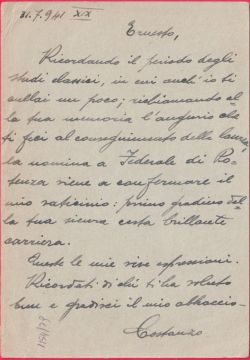 31.7.941 XIX
Ernesto,
Ricordando il periodo degli
studi classici, in cui anch'io ti
cullai un poco; richiamando al
la tua memoria l'augurio che
ti feci al conseguimento della laurea,
la nomina a Federale di Po-
tenza viene a confermare il
mio vaticinio: primo gradino del
la tua sicura certa brillante
carriera.
Queste le mie vive espressioni.
Ricordati di chi ti ha voluto
bene e gradisci il mio abbraccio
Costanzo